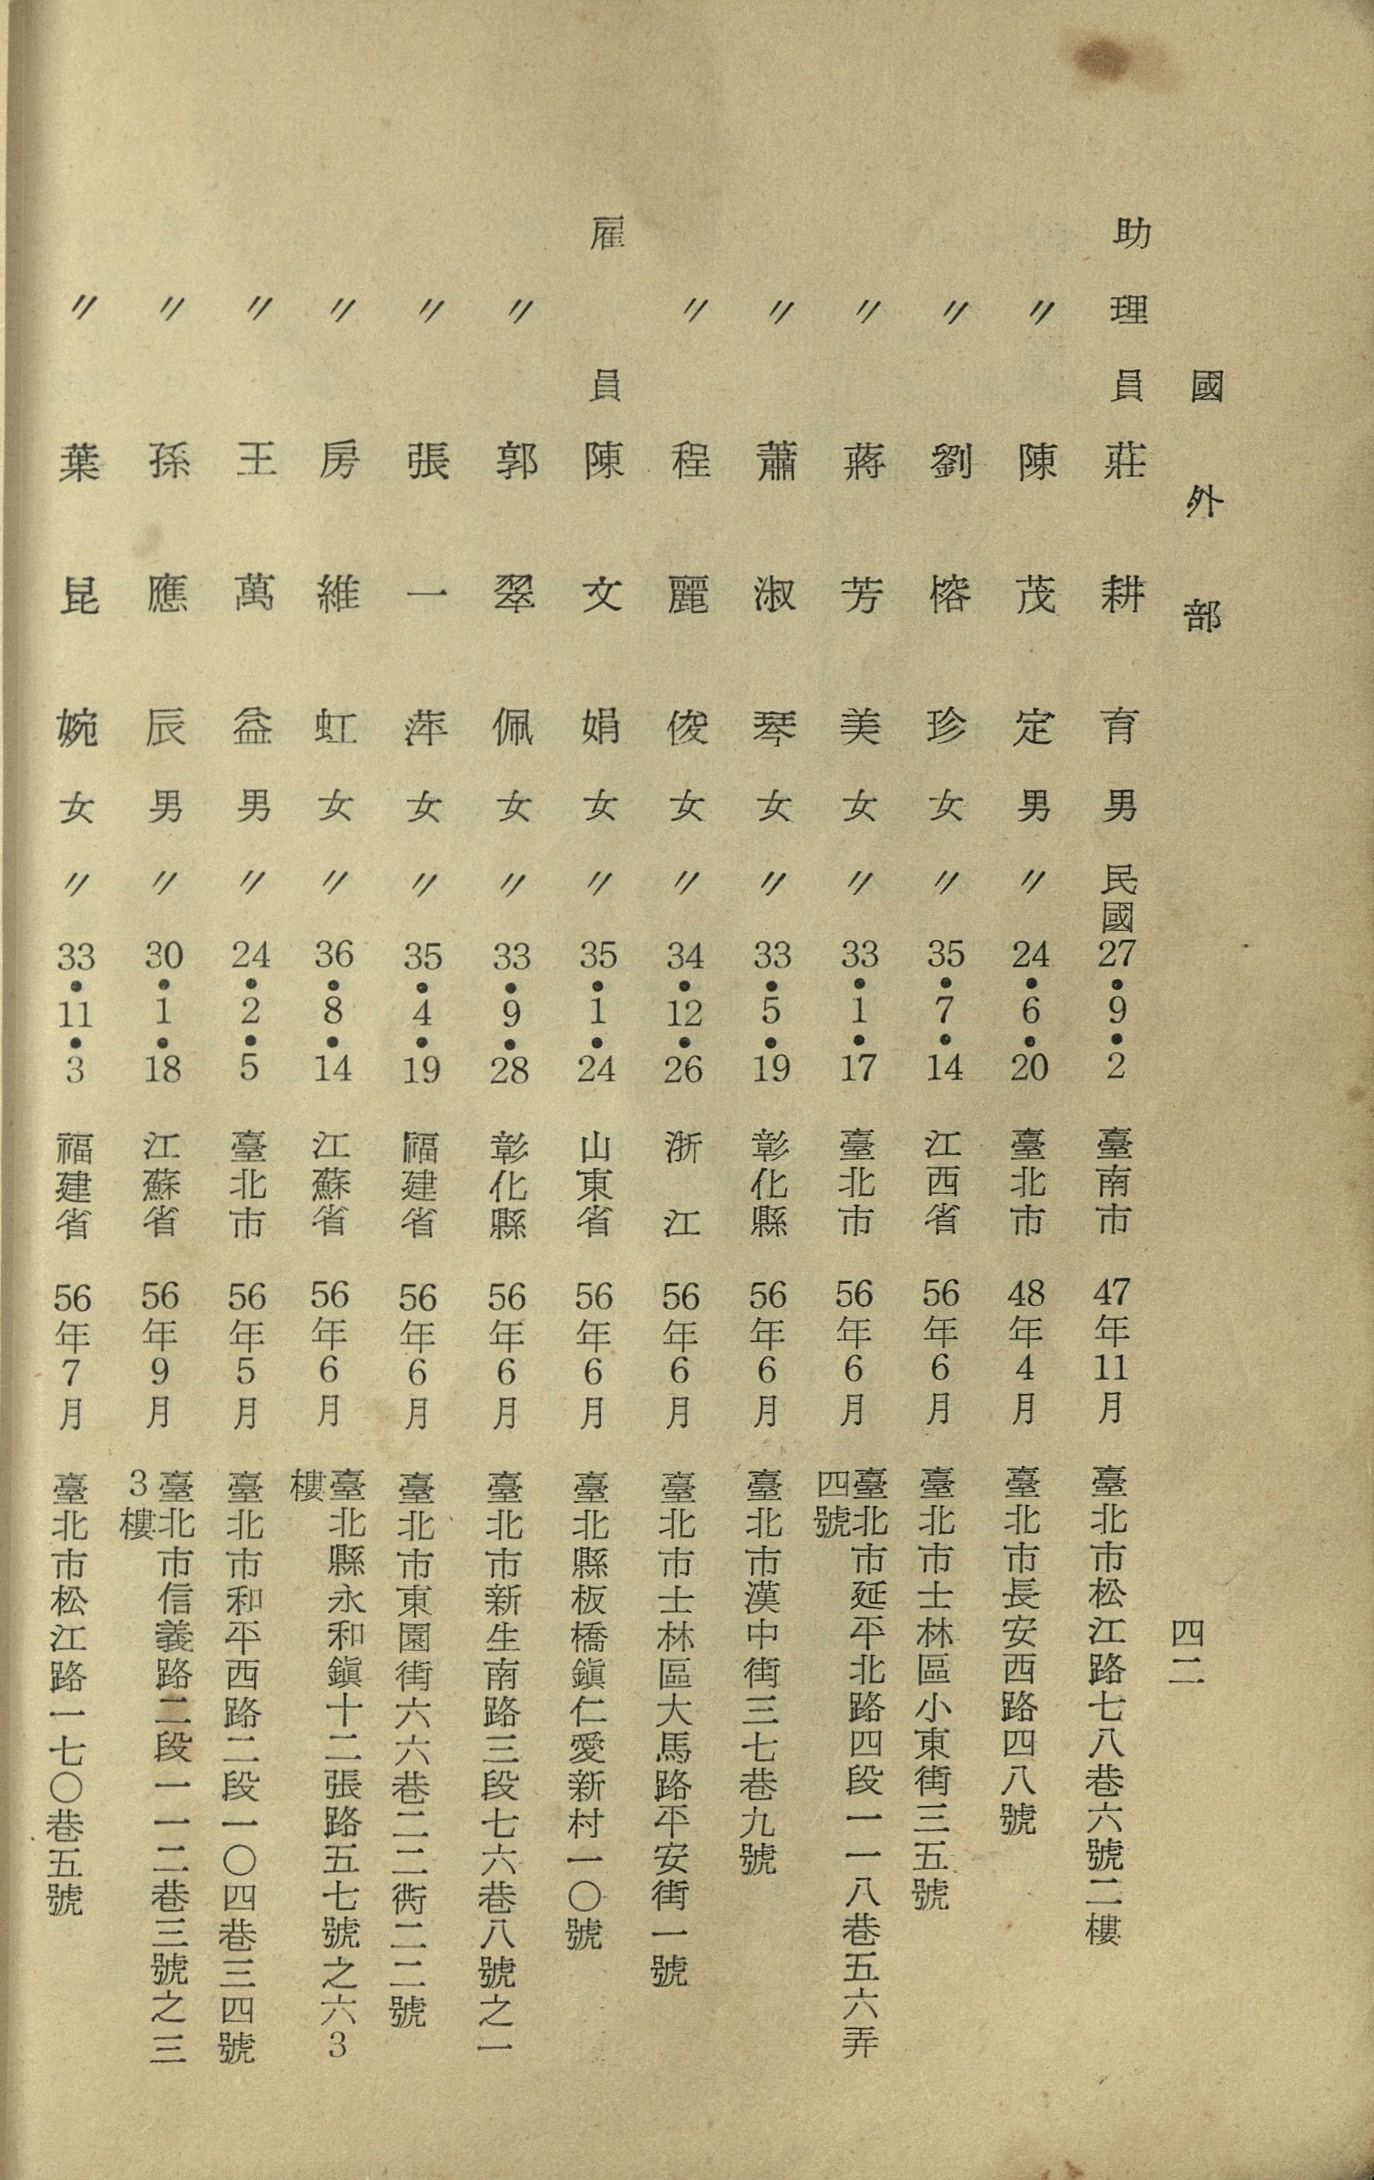 國外部 四二
助理員 莊耕育 男 民國27•9•2 臺南市 47年11月 臺北市松江路七八巷六號二樓
〃 陳茂定 男 〃 24•6•20 臺北市 48年4月 臺北市長安西路四八號
〃 劉榕珍 女 〃 35•7•14 江西省 56年6月 臺北市士林區小東街三五號
〃 蔣芳美 女 〃 33•1•17 臺北市 56年6月 臺北市延平北路四段一一八巷五六弄
四號
〃 蕭淑琴 女 〃 33•5•19 彰化縣 56年6月 臺北市漢中街三七巷九號
〃 程麗俊 女 〃 34•12•26 浙江 56年6月 臺北市士林區大馬路平安街一號
雇員 陳文娟 女 〃 35•1•24 山東省 56年6月 臺北縣板橋鎮仁愛新村一〇號
〃 郭翠佩 女 〃 33•9•28 彰化縣 56年6月 臺北市新生南路三段七六巷八號之一
〃 張一萍 女 〃 35•4•19 福建省 56年6月 臺北市東園街六六巷二二衖二二號
〃 房維虹 女 〃 36•8•14 江蘇省 56年6月 臺北縣永和鎮十二張路五七號之六3
樓
〃 王萬益 男 〃 24•2•5 臺北市 56年5月 臺北市和平西路二段一〇四巷三四號
〃 孫應辰 男 〃 30•1•18 江蘇省 56年9月 臺北市信義路二段一一二巷三號之三
3樓
〃 葉昆婉 女 〃 33•11•3 福建省 56年7月 臺北市松江路一七〇巷五號